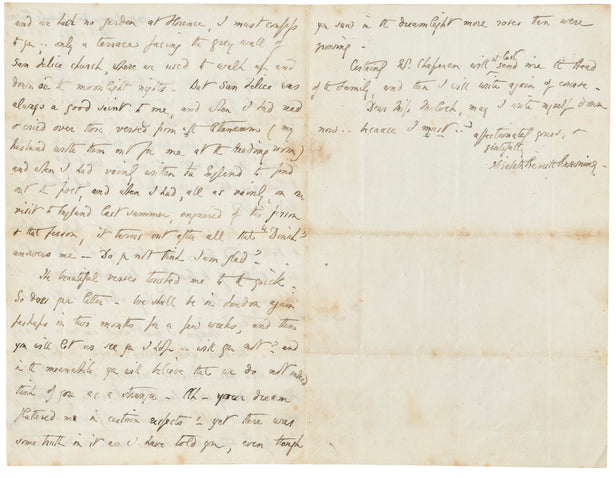 and we had no garden at Florence, I must confess
to you .. only a terrace facing the grey wall of
San Felice church, where we used to walk up and
down on the moonlight nights. But San Felice was
always a good saint to me, and when I had read
& cried over those verses from the Athenaeum (my
husband wrote them out for me at the reading room)
and when I had vainly written to England to find
out the poet, and when I had, all as vainly, on our
visit to England last summer, enquired of this person
& that person, it turns out after all that "Dinah"
answers me – Do you not think I am glad?
The beautiful verses touched me to the quick.
So does your letter – We shall be in London again
perhaps in two months for a few weeks, and then
you will let us see you I hope – will you not? and
in the meanwhile you will believe that we do not indeed
think of you as a stranger – Ah – your dream
flattered me in certain respects! – yet there was
some truth in it as I have told you, even though
you saw in the dreamlight more roses than were
growing –
Certainly Mr. Chapman will at last send me the Head
of the Family, and then I will write again of course –
Dear Miss Mulock, may I write myself down
now .. because I must ..
affectionately yours, &
gratefully
Elizabeth Barrett Browning –